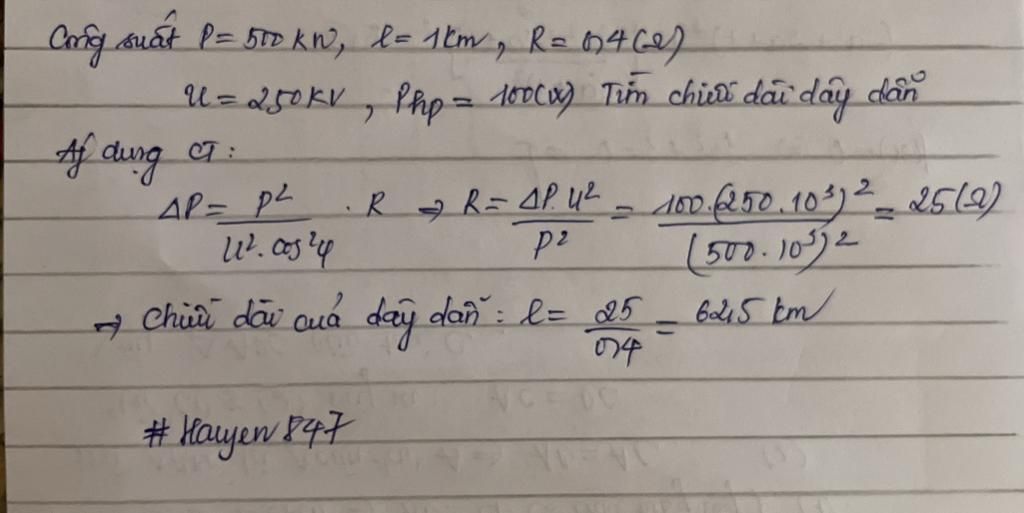 Công suất P = 500 kW, l = 1km, R = 0,4 (Ω)
U = 250KV, Php = 100(W) Tìm chiều dài dây dẫn
Áp dụng CT :
ΔP = P² / U².cos²φ . R ⇒ R = ΔP.U² / P² = 100.(250.10³)² / (500.10³)² = 25(Ω)
⇒ Chiều dài của dây dẫn : l = 25 / 0,4 = 62,5 km
# Hauyen 847